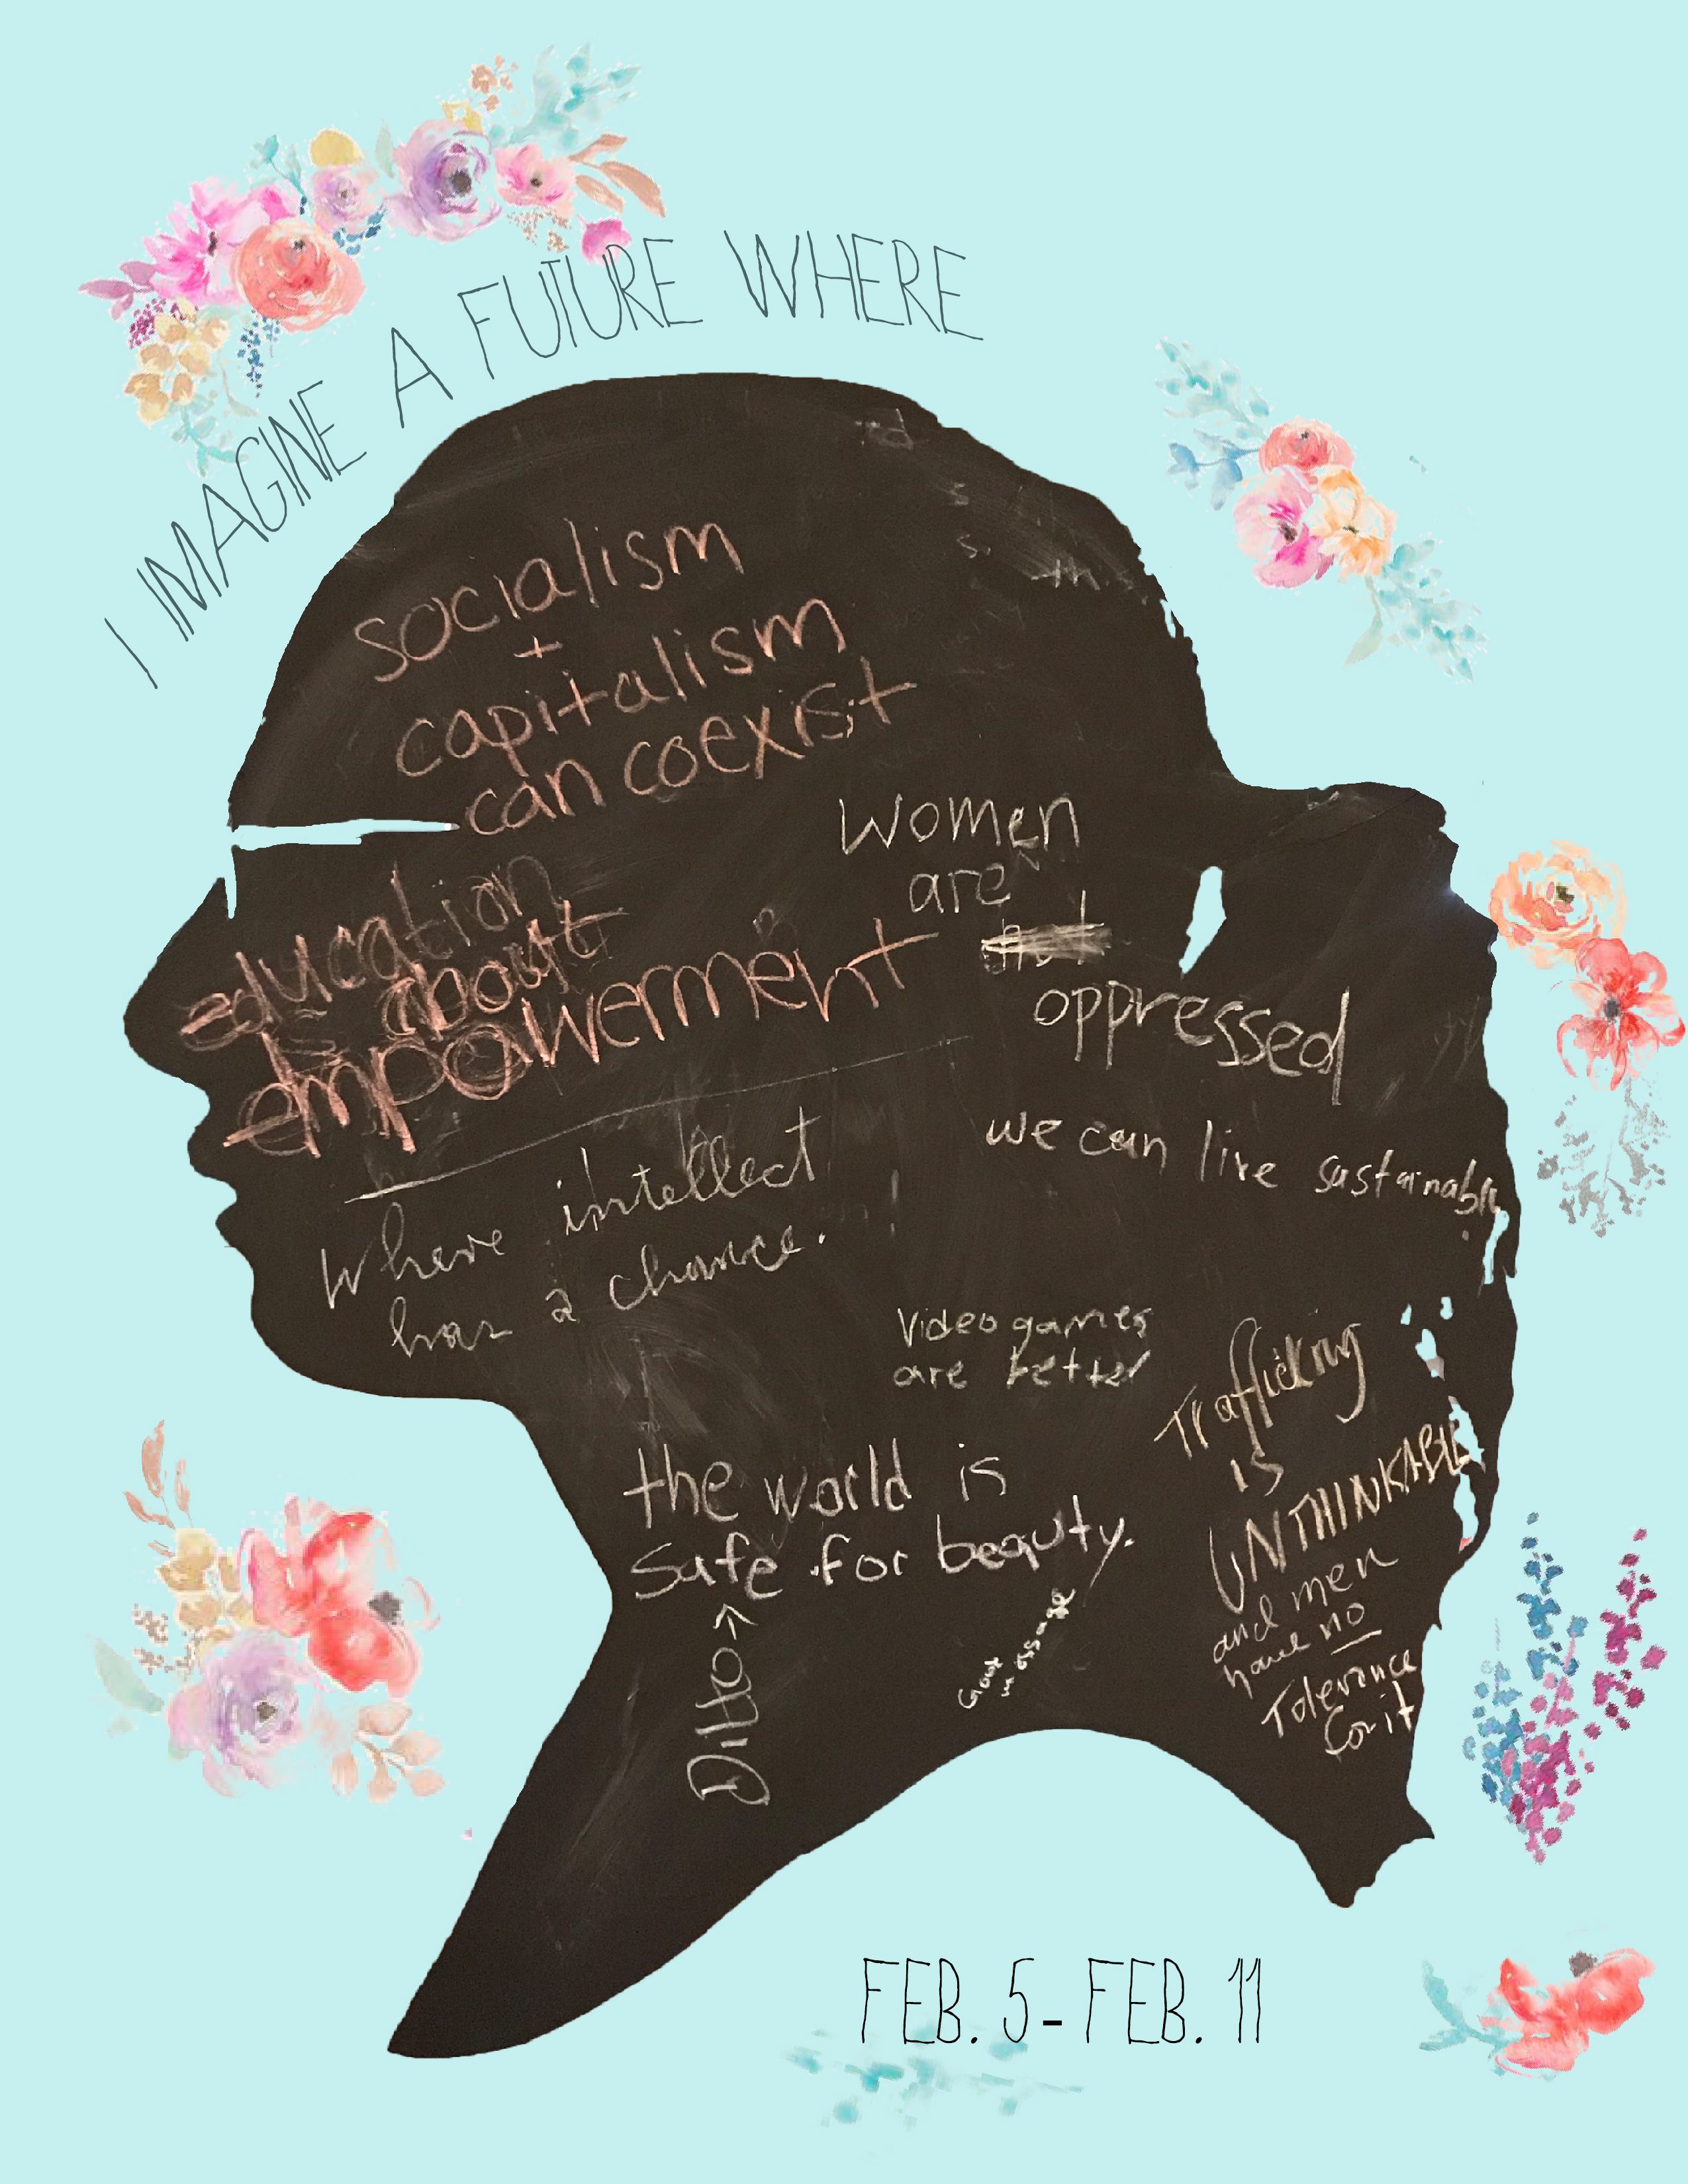 I IMAGINE A FUTURE WHERE
socialism
+
capitalism
can coexist
education
is about
empowerment
Women
are
not
oppressed
Where intellect
has a chance.
we can live sustainably
Video games
are better
Trafficking
is
UNTHINKABLE
and men
have no
Tolerance
for it
the world is
safe for beauty.
Ditto →
Great
message
FEB. 5 - FEB. 11